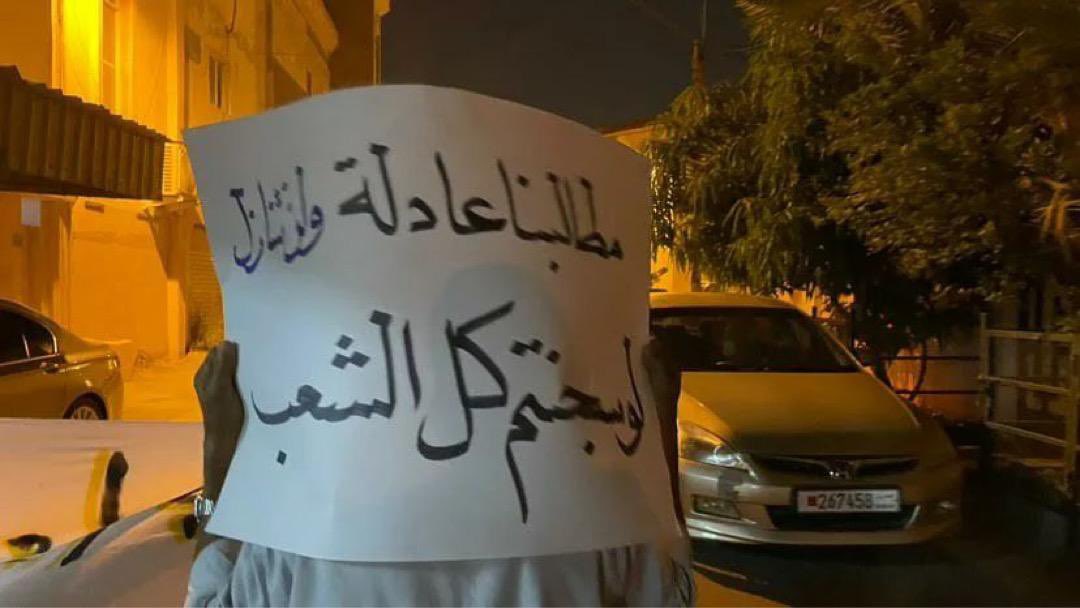 مطالبنا عادلة ولن نتنازل
لو سجنتم كل الشعب
267458